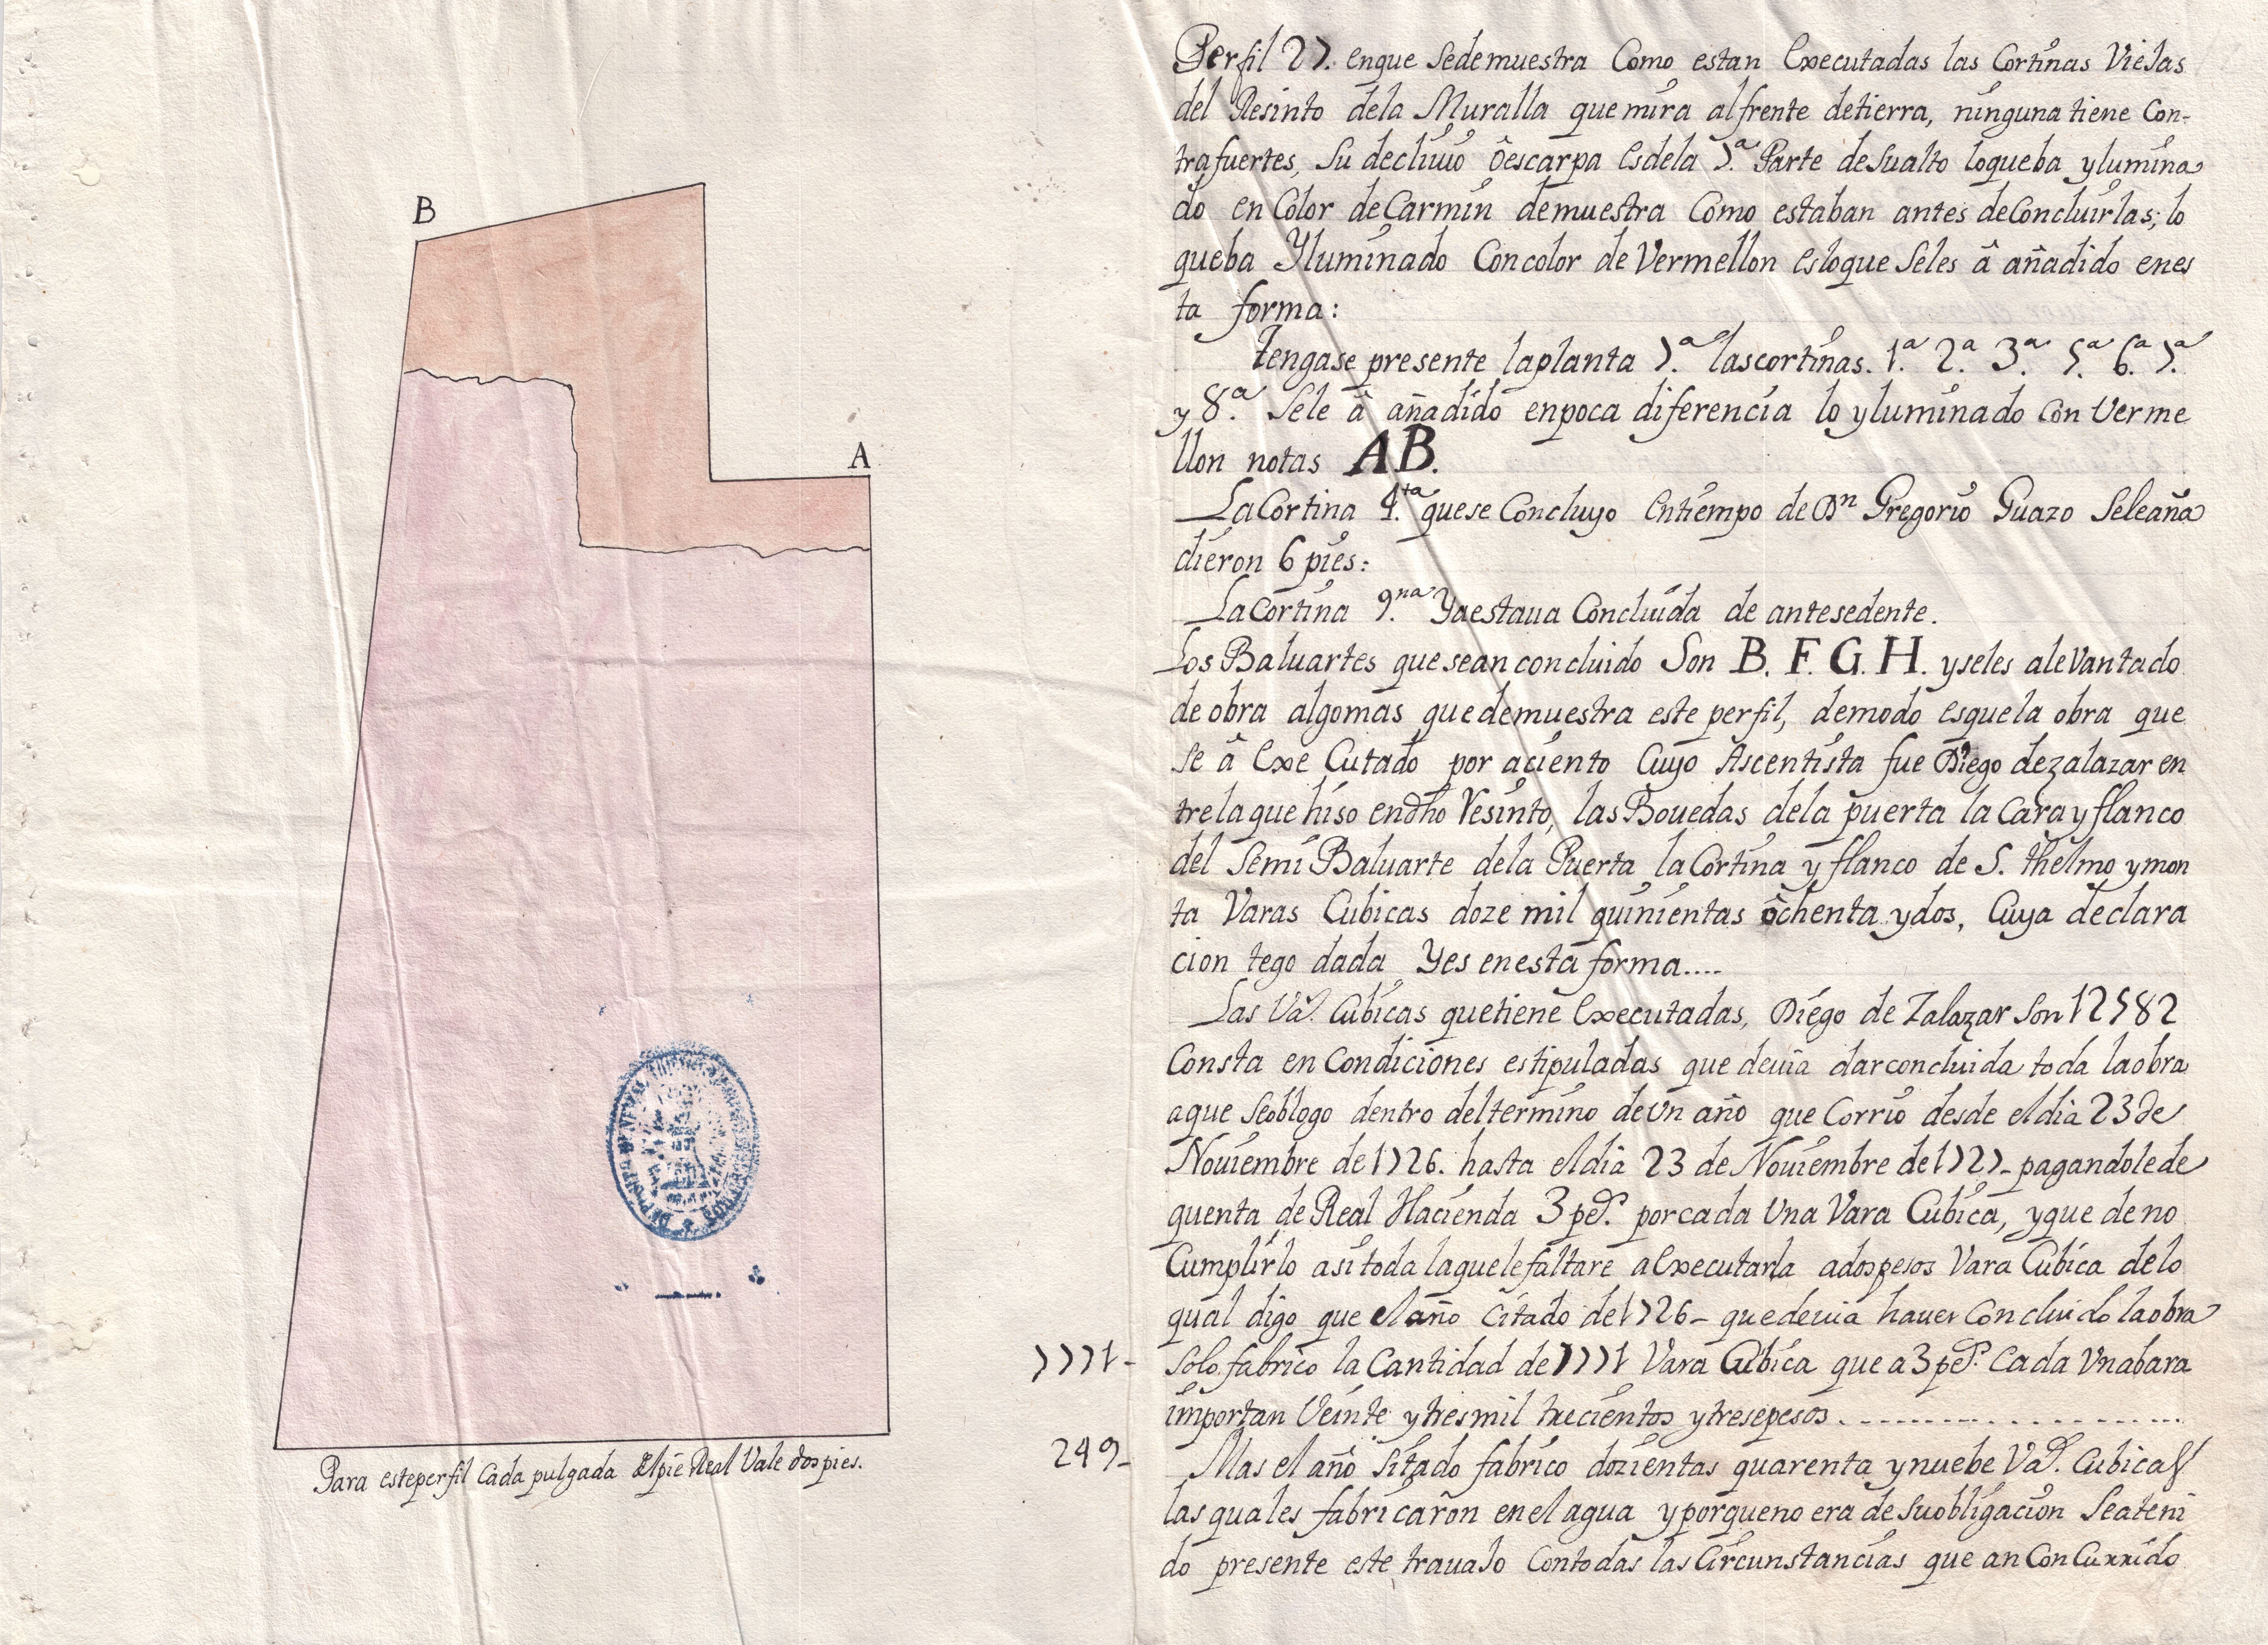 B
A
Para esteperfil Cada pulgada Elpie Real Vale dos pies.
Perfil 27. enque sedemuestra Como estan Executadas las Cortinas Viejas
del Resinto dela Muralla que mira alfrente detierra, ninguna tiene Con-
trafuertes, Su decliuio ôescarpa Es dela 7.ª Parte desualto loqueba ylumina
do en Color de Carmin demuestra Como estaban antes deConcluirlas; lo
queba Yluminado Concolor de Vermellon Esloque Seles â añadido enes
ta forma:
Tengase presente laplanta 7.ª lascortinas. 1.ª 2.ª 3.ª 5.ª 6.ª 7.ª
y 8.ª Sele â añadido enpoca diferencia lo yluminado Con Verme
llon notas AB.
La Cortina 4.ta quese Concluyo Entiempo de Dn Gregorio Guazo Seleaña
dieron 6 pies:
La Cortina 9.na Yaestaua Concluida de antesedente.
Los Baluartes quesean concluido Son B. F. G. H. yseles alevantado
de obra algomas quedemuestra este perfil, demodo esquela obra que
se â Exe Cutado por aciento Cuyo Ascentista fue Diego dezalazar en
trelaque hiso endho Resinto, las Bouedas dela puerta la Cara y flanco
del Semi Baluarte dela Puerta la Cortina y flanco de S. Thelmo ymon
ta Varas Cubicas doze mil quinientas ôchenta ydos, Cuya declara
cion tego dada Yes enesta forma....
Las Vas. Cubicas quetiene Executadas, Diego de Zalazar Son 12582
Consta en Condiciones estipuladas que deuia darconcluida toda laobra
aque seoblogo dentro deltermino deun año que Corrio desde eldia 23 de
Nouiembre de 1726. hasta eldia 23 de Nouiembre de 1727- pagandolede
quenta de Real Hacienda 3 pes. porcada Una Vara Cubica, yque de no
Cumplirlo asi toda laquelefaltare aExecutarla adospesos Vara Cubica delo
qual digo que elaño Citado de 1726- quedeuia hauer Concluido laobra
7771- Solo fabrico la Cantidad de 7771 Vara Cubica que a 3 pes. Cada Vnabara
importan Veinte ytresmil trecientos ytresepesos
249- Mas el año Sitado fabrico dozientas quarenta ynuebe Vas. Cubicas
las quales fabricaron enel agua yporqueno era de Suobligacion Seateni
do presente este trauajo Contodas las Circunstancias que an Con Currido